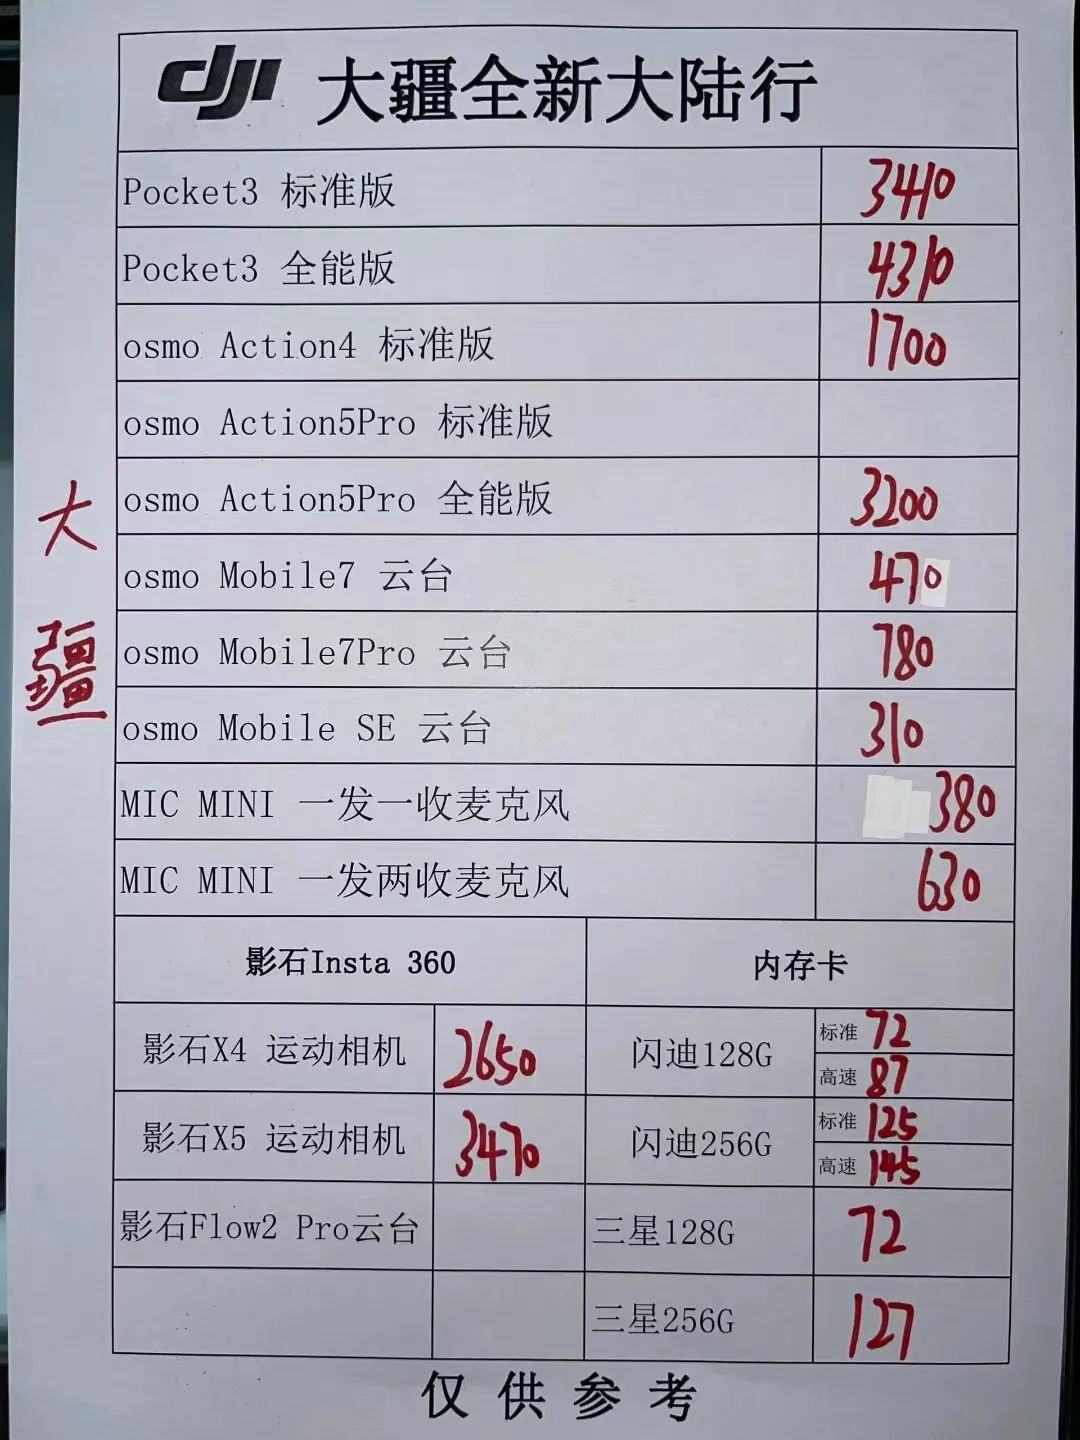 dji 大疆全新大陆行
Pocket3 标准版 3410
Pocket3 全能版 4310
osmo Action4 标准版 1700
osmo Action5Pro 标准版
osmo Action5Pro 全能版 3200
osmo Mobile7 云台 470
osmo Mobile7Pro 云台 780
osmo Mobile SE 云台 310
MIC MINI 一发一收麦克风 380
MIC MINI 一发两收麦克风 630
大疆
影石Insta 360 内存卡
影石X4 运动相机 2650 闪迪128G 标准 72
高速 87
影石X5 运动相机 3470 闪迪256G 标准 125
高速 145
影石Flow2 Pro云台 三星128G 72
三星256G 127
仅供参考